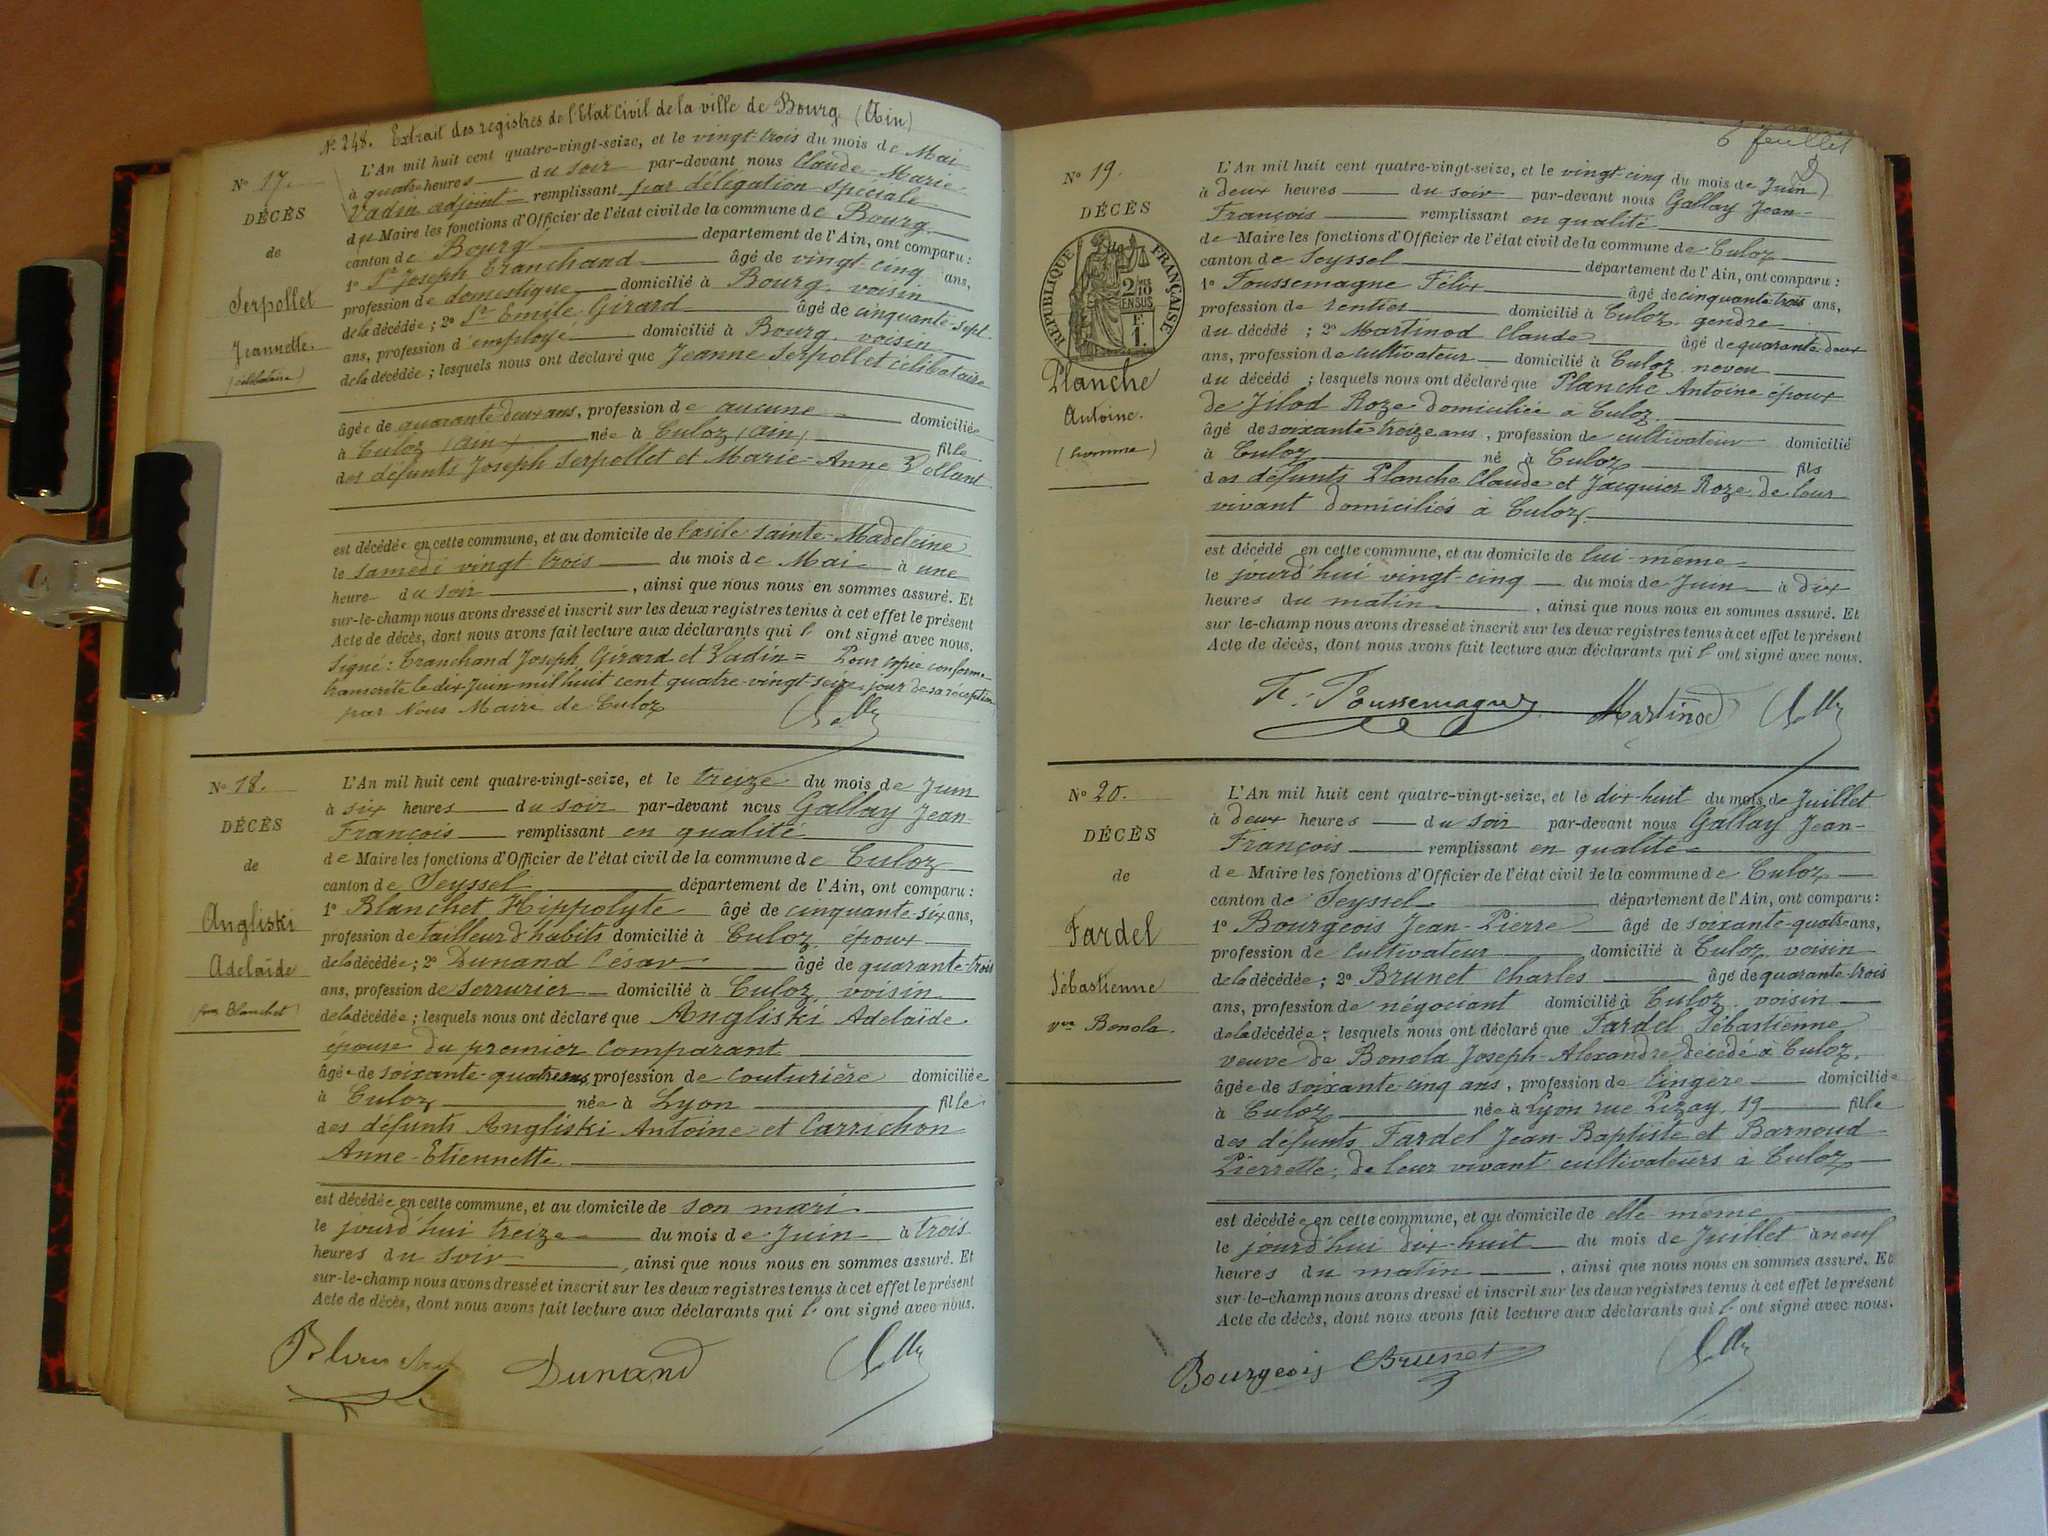 Nº 248. Extrait des registres de l'Etat Civil de la ville de Bourg (Ain)
Nº 17.
DÉCÈS
de
Serpollet
Jeannette.
(célibataire)
L'An mil huit cent quatre-vingt-seize, et le vingt-trois du mois de Mai
à quatre heures du soir par-devant nous Claude Marie
Vadin adjoint remplissant par délégation spéciale
du Maire les fonctions d'Officier de l'état civil de la commune de Bourg
canton de Bourg département de l'Ain, ont comparu :
1º Sr Joseph Tranchand âgé de vingt-cinq ans,
profession de domestique domicilié à Bourg voisin
de la décédée ; 2º Sr Emile Girard âgé de cinquante-sept
ans, profession d'employé domicilié à Bourg, voisin
de la décédée ; lesquels nous ont déclaré que Jeanne Serpollet célibataire
âgée de quarante deux ans, profession de aucune domiciliée
à Culoz (Ain) née à Culoz (Ain) fille
des défunts Joseph Serpollet et Marie-Anne
est décédée en cette commune, et au domicile de l'asile Sainte-Madeleine
le samedi vingt trois du mois de Mai à une
heure du soir, ainsi que nous nous en sommes assuré. Et
sur-le-champ nous avons dressé et inscrit sur les deux registres tenus à cet effet le présent
Acte de décès, dont nous avons fait lecture aux déclarants qui l' ont signé avec nous.
Signé : Tranchand Joseph, Girard et Vadin = Pour copie conforme
transcrite le dix Juin mil huit cent quatre-vingt-seize, jour de sa réception
par Nous Maire de Culoz
Nº 18.
DÉCÈS
de
Angliski
Adelaïde
(fme Blanchet)
L'An mil huit cent quatre-vingt-seize, et le treize du mois de Juin
à six heures du soir par-devant nous Gallay Jean-
François remplissant en qualité
de Maire les fonctions d'Officier de l'état civil de la commune de Culoz
canton de Seyssel département de l'Ain, ont comparu :
1º Blanchet Hippolyte âgé de cinquante-six ans,
profession de tailleur d'habits domicilié à Culoz, époux
de la décédée ; 2º Dunand Cesar âgé de quarante-trois
ans, profession de serrurier domicilié à Culoz, voisin
de la décédée ; lesquels nous ont déclaré que Angliski Adelaïde
épouse du premier comparant
âgée de soixante-quatre ans, profession de couturière domiciliée
à Culoz née à Lyon fille
des défunts Angliski Antoine et Carrichon
Anne-Etiennette.
est décédée en cette commune, et au domicile de son mari
le jourd'hui treize du mois de Juin à trois
heures du soir, ainsi que nous nous en sommes assuré. Et
sur-le-champ nous avons dressé et inscrit sur les deux registres tenus à cet effet le présent
Acte de décès, dont nous avons fait lecture aux déclarants qui l' ont signé avec nous.
Blanchet Dunand
6 feuillet
Nº 19.
DÉCÈS
RÉPUBLIQUE FRANÇAISE
2/10 EN SUS
F. 1.
Planche
Antoine.
(homme)
L'An mil huit cent quatre-vingt-seize, et le vingt-cinq du mois de Juin
à deux heures du soir par-devant nous Gallay Jean-
François remplissant en qualité
de Maire les fonctions d'Officier de l'état civil de la commune de Culoz
canton de Seyssel département de l'Ain, ont comparu :
1º Toussemagne Félix âgé de cinquante-trois ans,
profession de rentier domicilié à Culoz, gendre
du décédé ; 2º Martinod Claude âgé de quarante-deux
ans, profession de cultivateur domicilié à Culoz, neveu
du décédé ; lesquels nous ont déclaré que Planche Antoine époux
de Jilod Roze domiciliée à Culoz
âgé de soixante-treize ans, profession de cultivateur domicilié
à Culoz né à Culoz fils
des défunts Planche Claude et Jacquier Roze de leur
vivant domiciliés à Culoz.
est décédé en cette commune, et au domicile de lui-même
le jourd'hui vingt-cinq du mois de Juin à dix
heures du matin, ainsi que nous nous en sommes assuré. Et
sur-le-champ nous avons dressé et inscrit sur les deux registres tenus à cet effet le présent
Acte de décès, dont nous avons fait lecture aux déclarants qui l' ont signé avec nous.
F. Toussemagne Martinod
Nº 20.
DÉCÈS
de
Fardel
Sébastienne
vve Bonola.
L'An mil huit cent quatre-vingt-seize, et le dix-huit du mois de Juillet
à deux heures du soir par-devant nous Gallay Jean-
François remplissant en qualité
de Maire les fonctions d'Officier de l'état civil de la commune de Culoz
canton de Seyssel département de l'Ain, ont comparu :
1º Bourgeois Jean-Pierre âgé de soixante-quatre ans,
profession de cultivateur domicilié à Culoz, voisin
de la décédée ; 2º Brunet Charles âgé de quarante-trois
ans, profession de négociant domicilié à Culoz, voisin
de la décédée ; lesquels nous ont déclaré que Fardel Sébastienne
veuve de Bonola Joseph-Alexandre décédé à Culoz.
âgée de soixante cinq ans, profession de lingère domiciliée
à Culoz née à Lyon rue Pizay, 19 fille
des défunts Fardel Jean-Baptiste et Barnoud
Pierrette, de leur vivant cultivateurs à Culoz
est décédée en cette commune, et au domicile de elle même
le jourd'hui dix-huit du mois de Juillet à neuf
heures du matin, ainsi que nous nous en sommes assuré. Et
sur-le-champ nous avons dressé et inscrit sur les deux registres tenus à cet effet le présent
Acte de décès, dont nous avons fait lecture aux déclarants qui l' ont signé avec nous.
Bourgeois Brunet